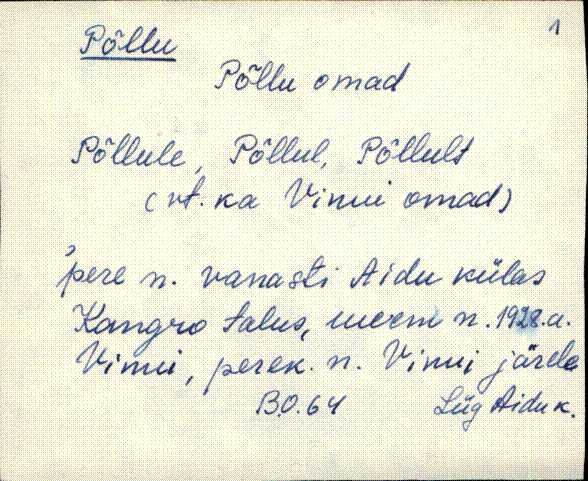 1
Põllu
Põllu omad
Põllule, Põllul, Põllult
(vt. ka Vinni omad)
'pere n. vanasti Aidu külas
Kangro talus, uuem n. 1928.a.
Vinni, perek. n. Vinni järele
B.O.64 Lüg Aidu k.